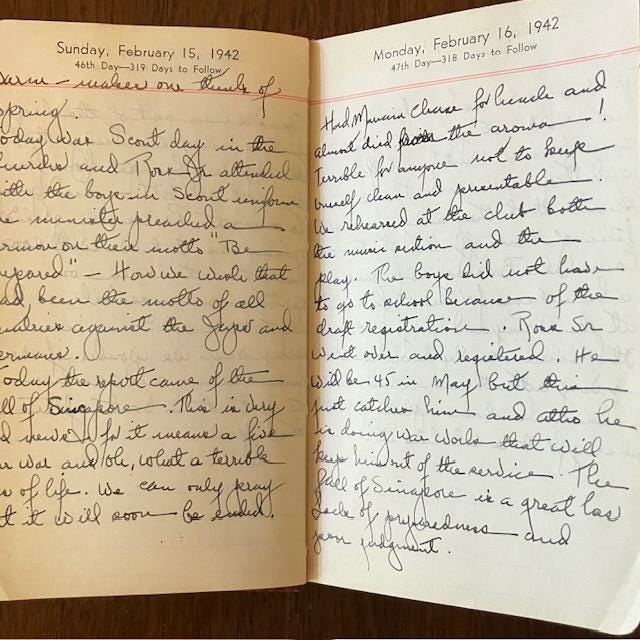 Sunday, February 15, 1942
46th Day—319 Days to Follow
Warm – makes one think of
spring.
oday was Scout day in the
and Ross Jr attended
with the boys in Scout uniform
e minister preached a
ermon on their motto "Be
epared" – How we wish that
ad been the motto of all
ountries against the Japs and
ermans.
oday the report came of the
ll of Singapore. This is very
d news for it means a five
ar war and oh, what a terrible
of life. We can only pray
at it will soon be ended.
Monday, February 16, 1942
47th Day—318 Days to Follow
Had Cleaner for and
almost died from the aroma!
Terrible for anyone not to keep
oneself clean and presentable.
We rehearsed at the club both
the music section and the
play. The boys did not have
to go to school because of the
draft registration. Ross Sr
went over and registered. He
will be 45 in May but this
just catches him and altho he
is doing war work that will
keep him out of the service. The
fall of Singapore is a great loss
Lack of preparedness and
poor judgment.